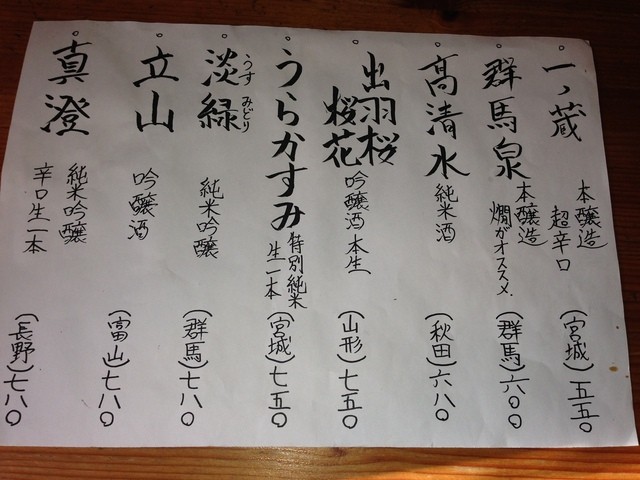 一ノ蔵 本醸造 超辛口 (宮城) 五五〇
群馬泉 本醸造 燗がオススメ. (群馬) 六〇〇
高清水 純米酒 (秋田) 六八〇
出羽桜 桜花 吟醸酒 本生 (山形) 七五〇
うらかすみ 特別純米 生一本 (宮城) 七五〇
淡緑 うすみどり 純米吟醸 (群馬) 七八〇
立山 吟醸酒 (富山) 七八〇
真澄 純米吟醸 辛口生一本 (長野) 七八〇